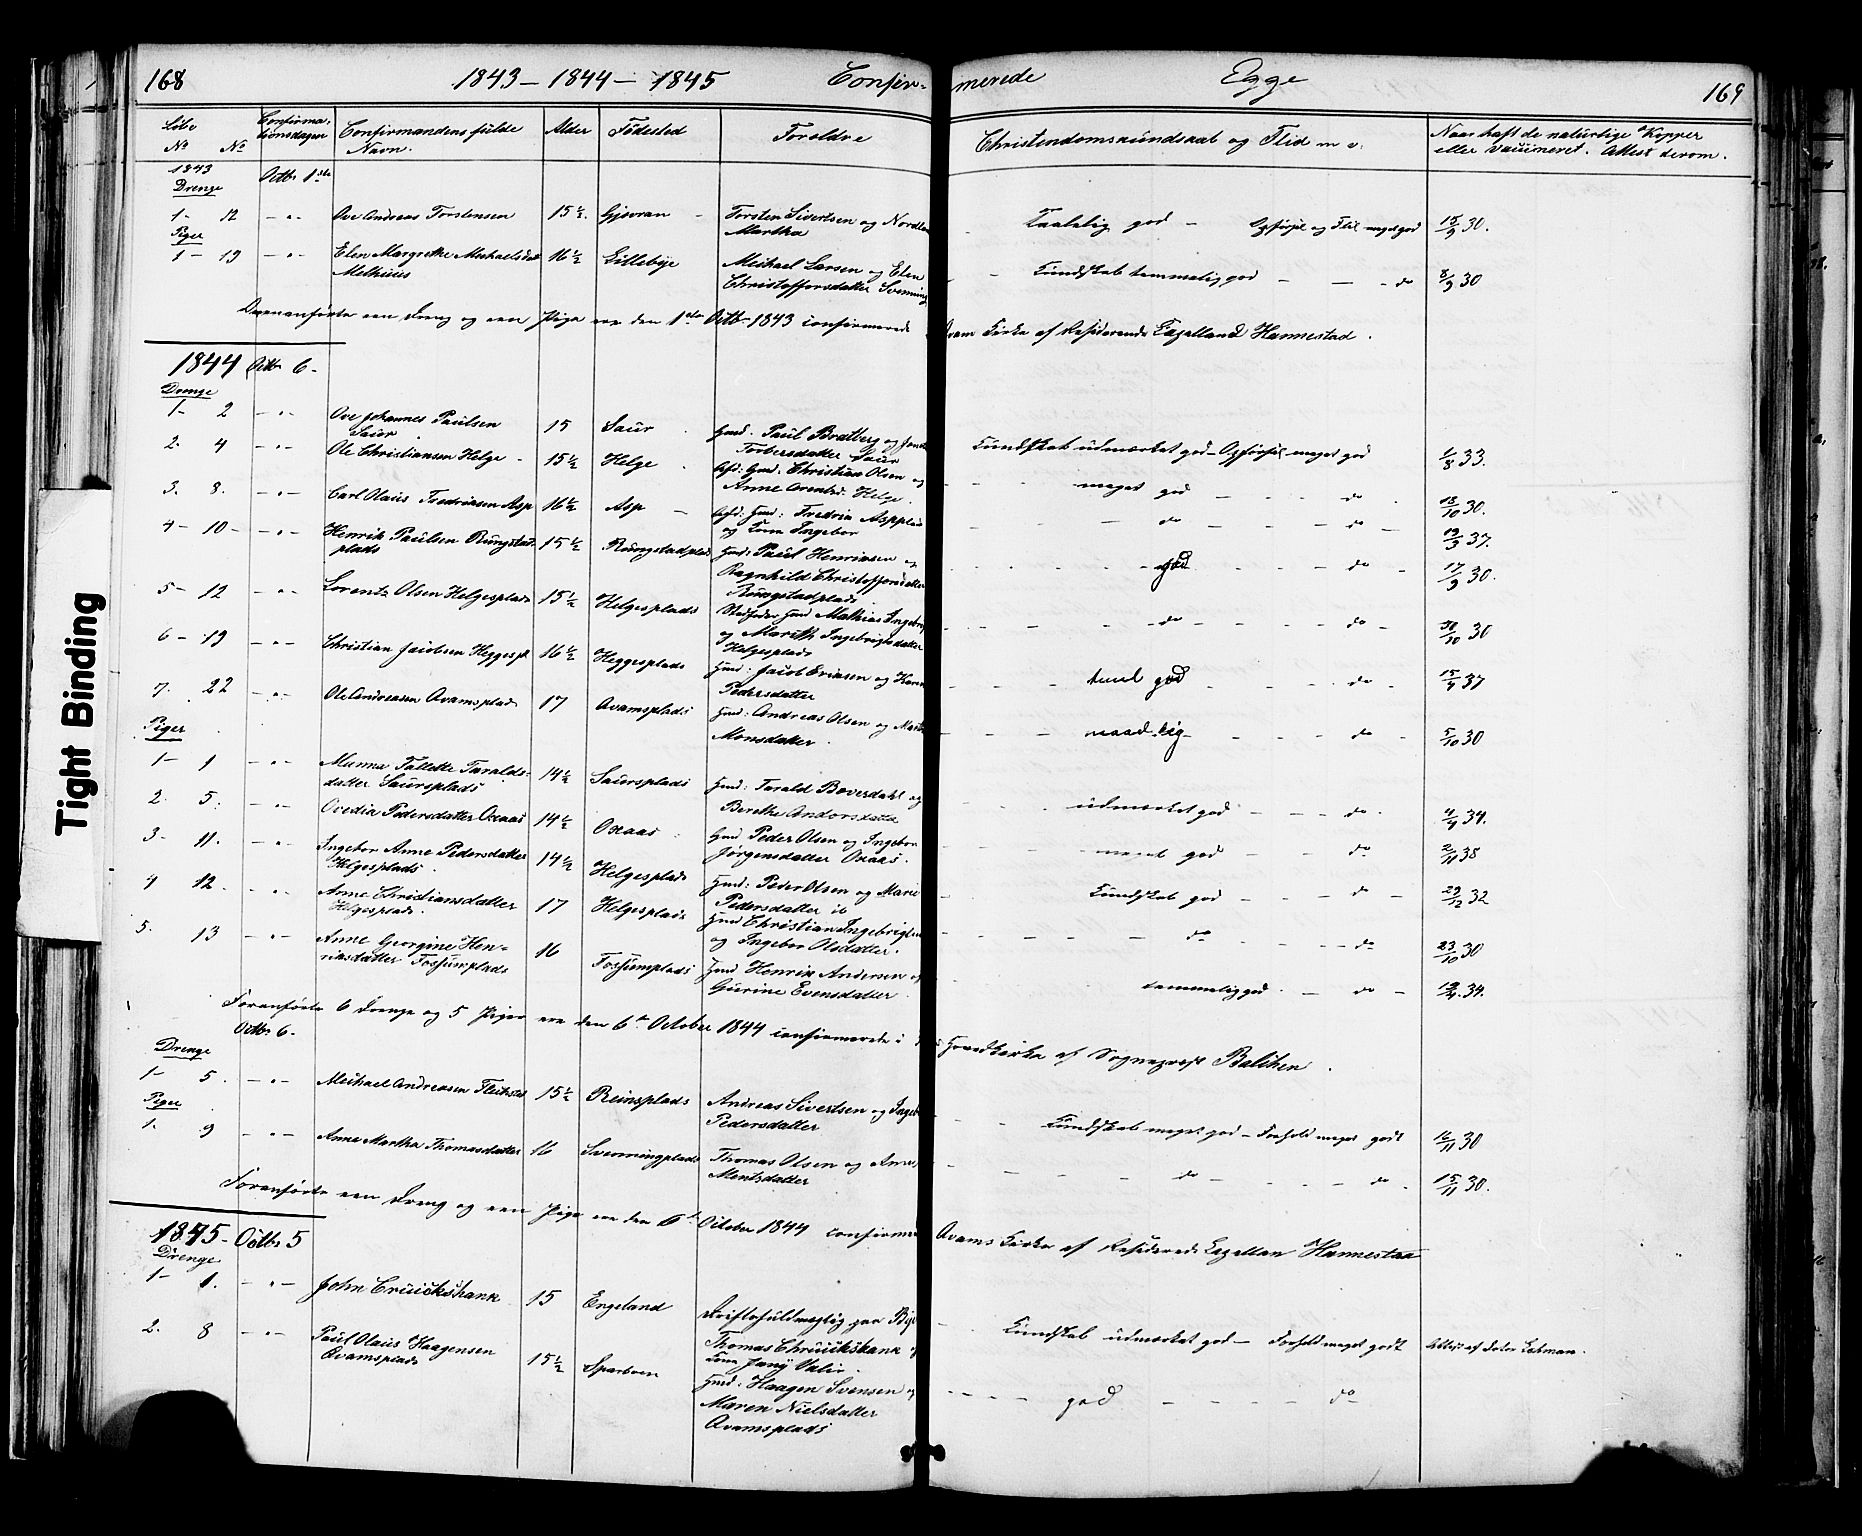 168 1843 – 1844 – 1845 Confir-
merede Egge 169
Löbe No No Confirmationsdagen Confirmandens fulde Navn. Alder Födested Foreldre Christendomskundskab og Flid m v. Naar haft de naturlige Kopper eller vaccineret. Attest derom.
1843 Octb 1ste
Drenge
1- 12 - " - Ove Andreas Torstensen 15 ½ Gjövran Torsten Sivertsen og
Martha Taalelig god - Opförsel og Flid meget god 15/9 30.
Piger
1- 19 - " - Elen Margrethe Michaelsdat 16 ½ Lillebye Michael Larsen og Elen
Melhuus Christoffersdatter Svenning Kundskab temmelig god - - do 8/9 30
een Dreng og een Pige ere den 1ste Octb 1843 confirmerede
Qvam Kirke af Residerende Capelland Hannestad.
1844 Octb 6-
Drenge
1- 2 - " - Ove Johannes Paulsen 15 Saur Gmd. Paul Bratberg og
Saur Torbersdatter Saur Kundskab udmærket god - Opförsel meget god 1/8 33.
2. 4 - " - Ole Christiansen Helge 15 ½ Helge Gmd: Christian Olsen og
Anne Helge. meget god - do 13/10 30.
3. 8. - " - Carl Olaus Fredriksen Asp 16 ½ Asp Gmd: Fredrik Aspplads
og Kone Ingebor do do 12/3 37.
4- 10- - " - Henrik Paulsen Rungstad- 15 ½ Rungstadplads Gmd: Paul Henriksen og
plads Ragnhild Christoffersdatter
Rungstadplads god do 17/9 30.
5- 12 - " - Lorentz Olsen Helgesplads 15 ½ Helgesplads Stedfader Gmd Mathias Ingebrig
og Marith Ingebrigtsdatter
Helgesplads do do 30/10 30
6- 19 - " - Christian Jacobsen Heggespl 16 ½ Heggesplads Gmd: Jacob Eriksen og Karen
Pedersdatter taal god do 15/9 37
7. 22 - " - Ole Andreasen Qvamsplads 17 Qvamsplads Gmd: Andreas Olsen og
Monsdatter. maadelig do 5/10 30
Piger
1- 1 - " - Munna Tallette Taralds- 14 ½ Saursplads Gmd: Tarald Boversdahl og
datter Saursplads Berethe Andorsdatter udmærket god do 4/9 34.
2. 5. - " - Ovedia Pedersdatter Oxaas 14 ½ Oxaas Gmd Peder Olsen og Ingebor
Jörgensdatter Oxaas. meget god do 2/11 38
3. 11. - " - Ingebor Anne Pedersdatter 14 ½ Helgesplads Gmd: Peder Olsen og Marie
Helgesplads. Pedersdatter ib Kundskab god do 29/12 32
4 12. - " - Anne Christiansdatter 17 Helgesplads Gmd Christian Ingebrigtsen
Helgesplads. og Ingebor Olsdatter. do do 23/10 30
5. 13 - " - Anne Georgine Hen- 16 Fossumplads Gmd Henrik Andersen og
riksdatter Fossumplads Gurine Evensdatter. temmelig god - do - 19/4 34.
Foranförte 6 Drenge og 5 Piger ere den 6te October 1844 confirmerede i
Hovedkirke af Sogneprest Balchen.
Octb 6-
Drenge
1- 5. - " - Michael Andreasen 15 ½ Reinsplads Andreas Sivertsen og
Pedersdatter Kundskab meget god - Forhold meget godt 16/11 30
Piger
1. 9 - " - Anne Martha Thomasdatter 16 Svenningplads Thomas Olsen og Anne
Mentsdatter do do 15/11 30.
Foranförte een Dreng og een Pige ere den 6te October 1844 confirmer
Qvams Kirke af Resider Capellan Hannestad
1845- Octb 5
Drenge
1- 1. - " - John Cruickshank 15 Engeland Driftsfuldmægtig paa
Thomas Chruickshank og
Kone Kundskab udmærket god - Forhold meget godt
2. 8 - " - Paul Olaus Haagensen 15 ½ Sparboen Gmd. Haagen Svensen og
Qvamsplads Maren Nielsdatter
Qvamsplads god do
Tight Binding